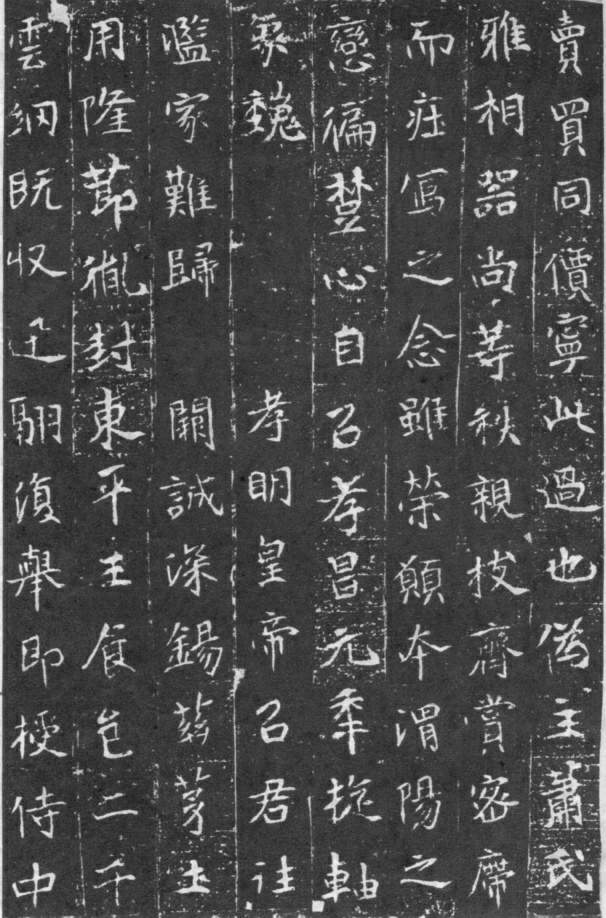 賣買同價寧此過也偽主蕭氏
雅相器尚等秩親枚齊賞密席
而莊舄之念雖榮願本渭陽之
戀偏楚心自以孝昌元年旋軸
象魏 孝明皇帝以君往
濫家難歸 闕誠深錫茲茅土
用隆節胤封東平王食邑二千
雲網既收迅翮復舉即授侍中